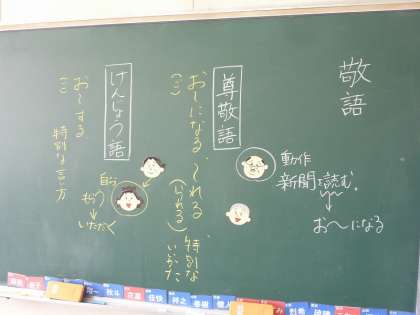 敬語
動作
新聞を読む。
お〜になる
尊敬語
お〜になる、〜れる 特別な
(ご) (られる) いいかた
けんじょう語
お〜する 特別な言い方
(ご)
自分
もらう
いただく
佳快
祥之
春樹
利希